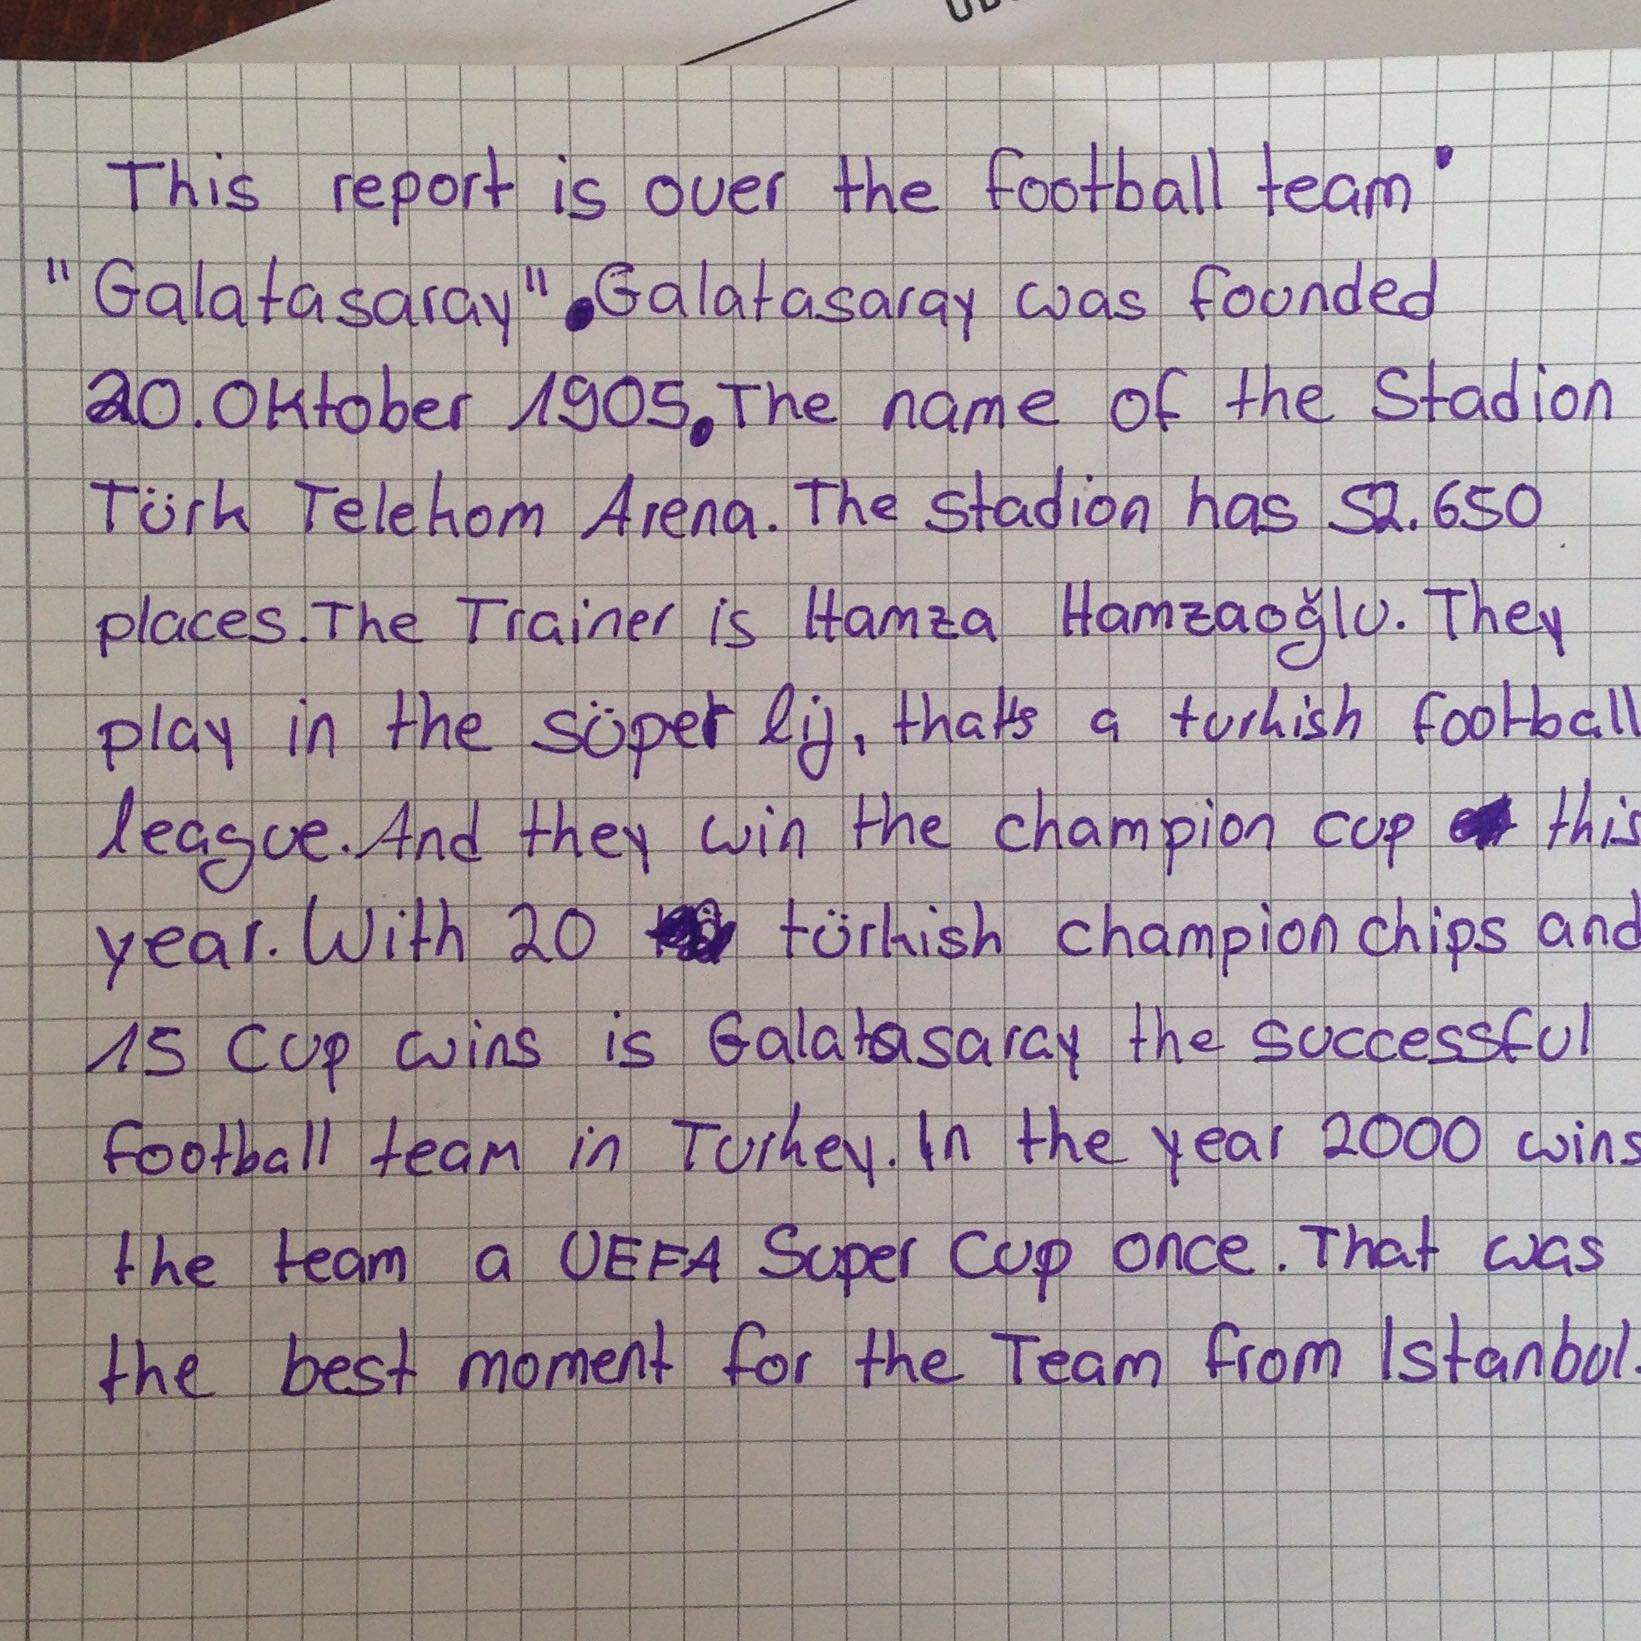 This report is over the football team
"Galatasaray". Galatasaray was founded
20. Oktober 1905. The name of the Stadion
Türk Telekom Arena. The stadion has 52.650
places. The Trainer is Hamza Hamzaoğlu. They
play in the süper lij, that's a turkish football
league. And they win the champion cup this
year. With 20 türkish champion chips and
15 Cup wins is Galatasaray the successful
football team in Turkey. In the year 2000 wins
the team a UEFA Super Cup once. That was
the best moment for the Team from Istanbul.